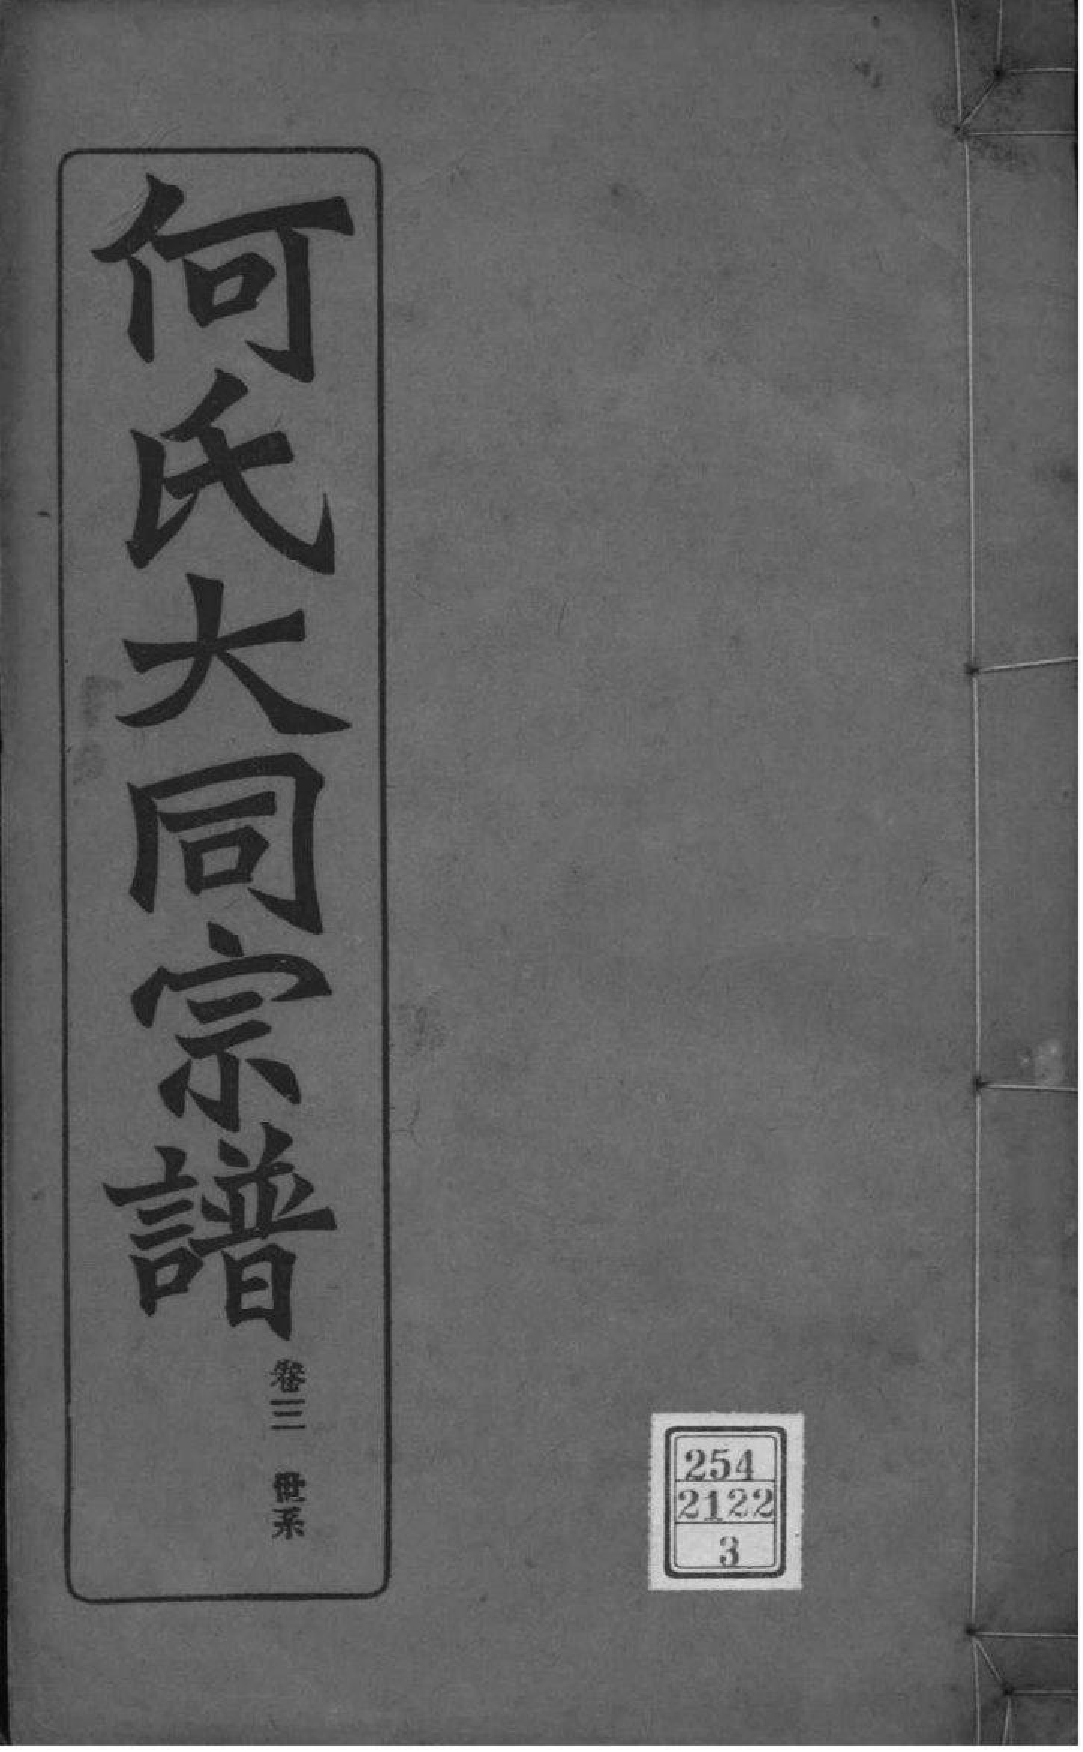 何氏大同宗譜
卷三 世系
254
2122
3